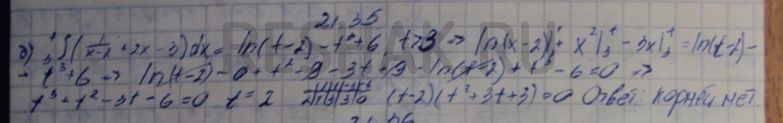 21.35
д) ₃∫ᵗ(1/(x-2)+2x-3)dx = ln(t-2) - t³+6, t>3 => ln(x-2)|₃ᵗ + x²|₃ᵗ - 3x|₃ᵗ = ln(t-2) -
- t³+6 => ln(t-2) - 0 + t² - 9 - 3t + 9 - ln(t-2) + t³ - 6 = 0 =>
t³+t²-3t-6=0 t=2 (t-2)(t²+3t+3)=0 Ответ: корней нет
RESHAK.RU